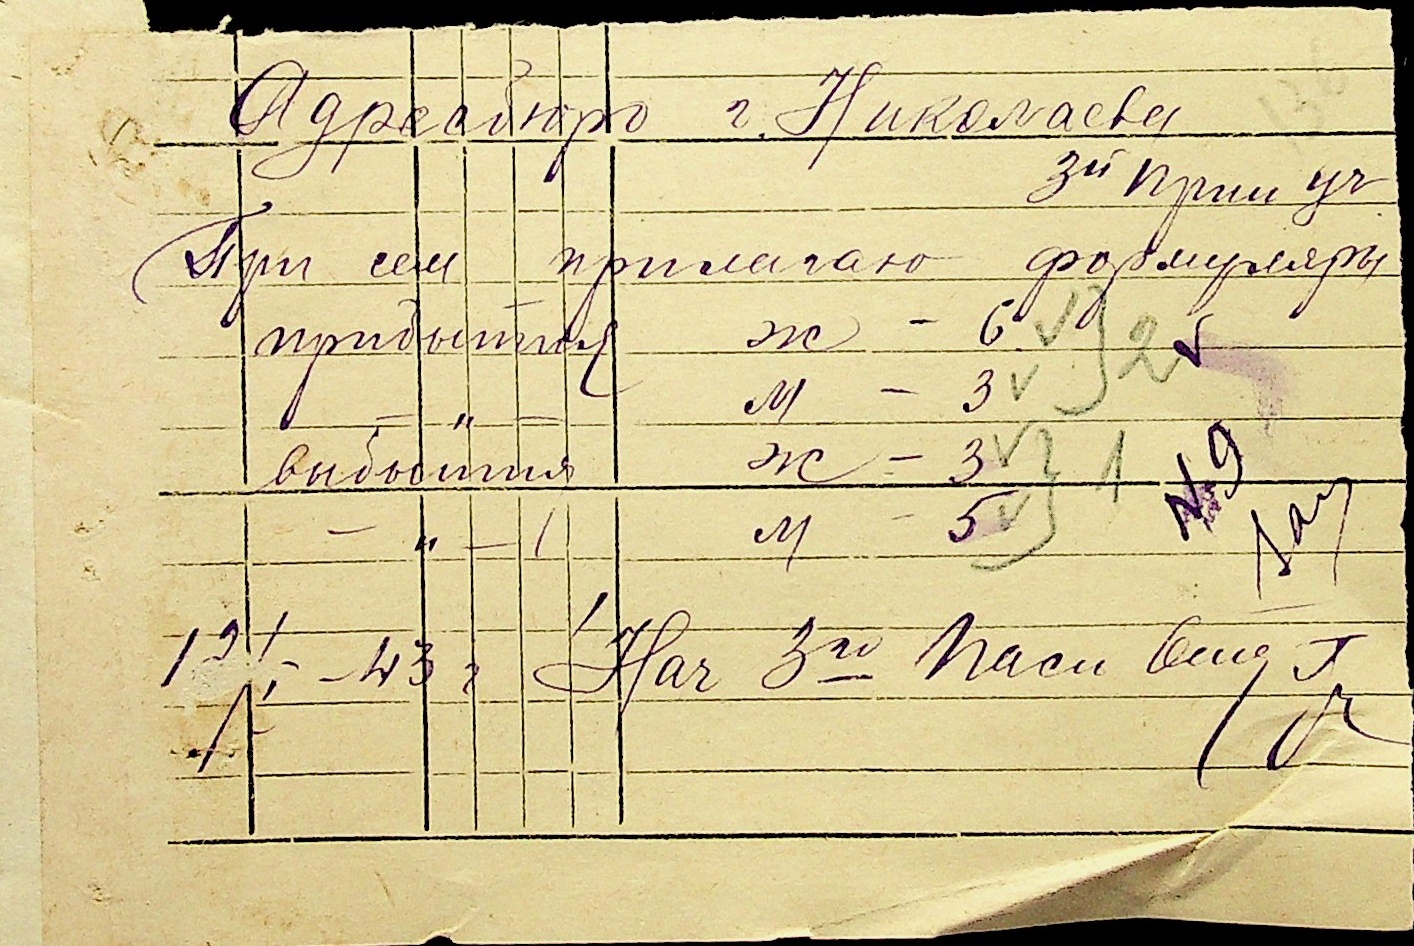 Адресбюро г. Николаева
3й
При сем прилагаю формуляры
прибытия ж - 6 } 2
- " - м - 3
выбытия ж - 3 } 1
- " - м - 5
№9
-43 г Нач 3го Пасп